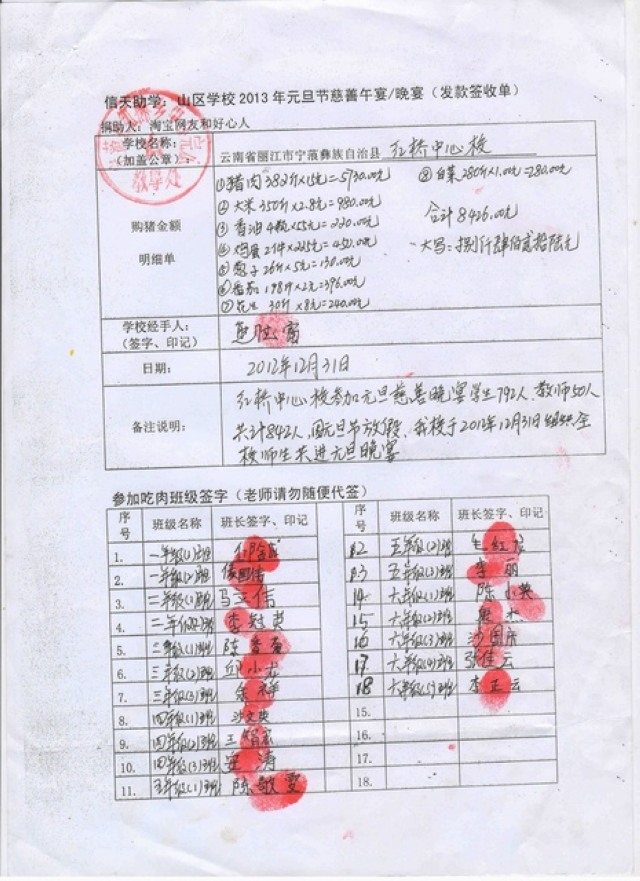 信天助学：山区学校2013年元旦节慈善午宴/晚宴（发款签收单）
捐助人：淘宝网友和好心人
学校名称：
（加盖公章）：
云南省丽江市宁蒗彝族自治县 红桥中心校
教导处
购猪金额
明细单
①猪肉382斤×15元=5730.00元
②大米350斤×2.8元=980.00元
③香油4瓶×55元=220.00元
④鸡蛋2件×225元=450.00元
⑤葱子26斤×5元=130.00元
⑥番茄198斤×2元=396.00元
⑦花生 30斤×8元=240.00元
⑧白菜280斤×1.00元=280.00元
合计8426.00元
大写：捌仟肆佰贰拾陆元
学校经手人：
（签字、印记）
日期：
2012年12月31日
备注说明：
红桥中心校参加元旦慈善晚宴学生792人，教师50人
共计842人，因元旦节放假，我校于2012年12月31日组织全
校师生共进元旦晚宴
参加吃肉班级签字（老师请勿随便代签）
序号 班级名称 班长签字、印记
1. 一年级(1)班
2. 一年级(2)班
3. 二年级(1)班 马三伟
4. 二年级(2)班
5. 三年级(1)班 陈
6. 三年级(2)班 邱小龙
7. 三年级(3)班 祥
8. 四年级(1)班 沙文
9. 四年级(2)班 王
10. 四年级(3)班 涛
11. 五年级(1)班 陈敏雯
序号 班级名称 班长签字、印记
12 五年级(2)班 红
13 五年级(3)班 李丽
14 六年级(1)班 陈小英
15 六年级(2)班 杰
16 六年级(3)班 沙国庆
17 六年级(4)班 张佳云
18 六年级(5)班 李正云
15.
16.
17.
18.